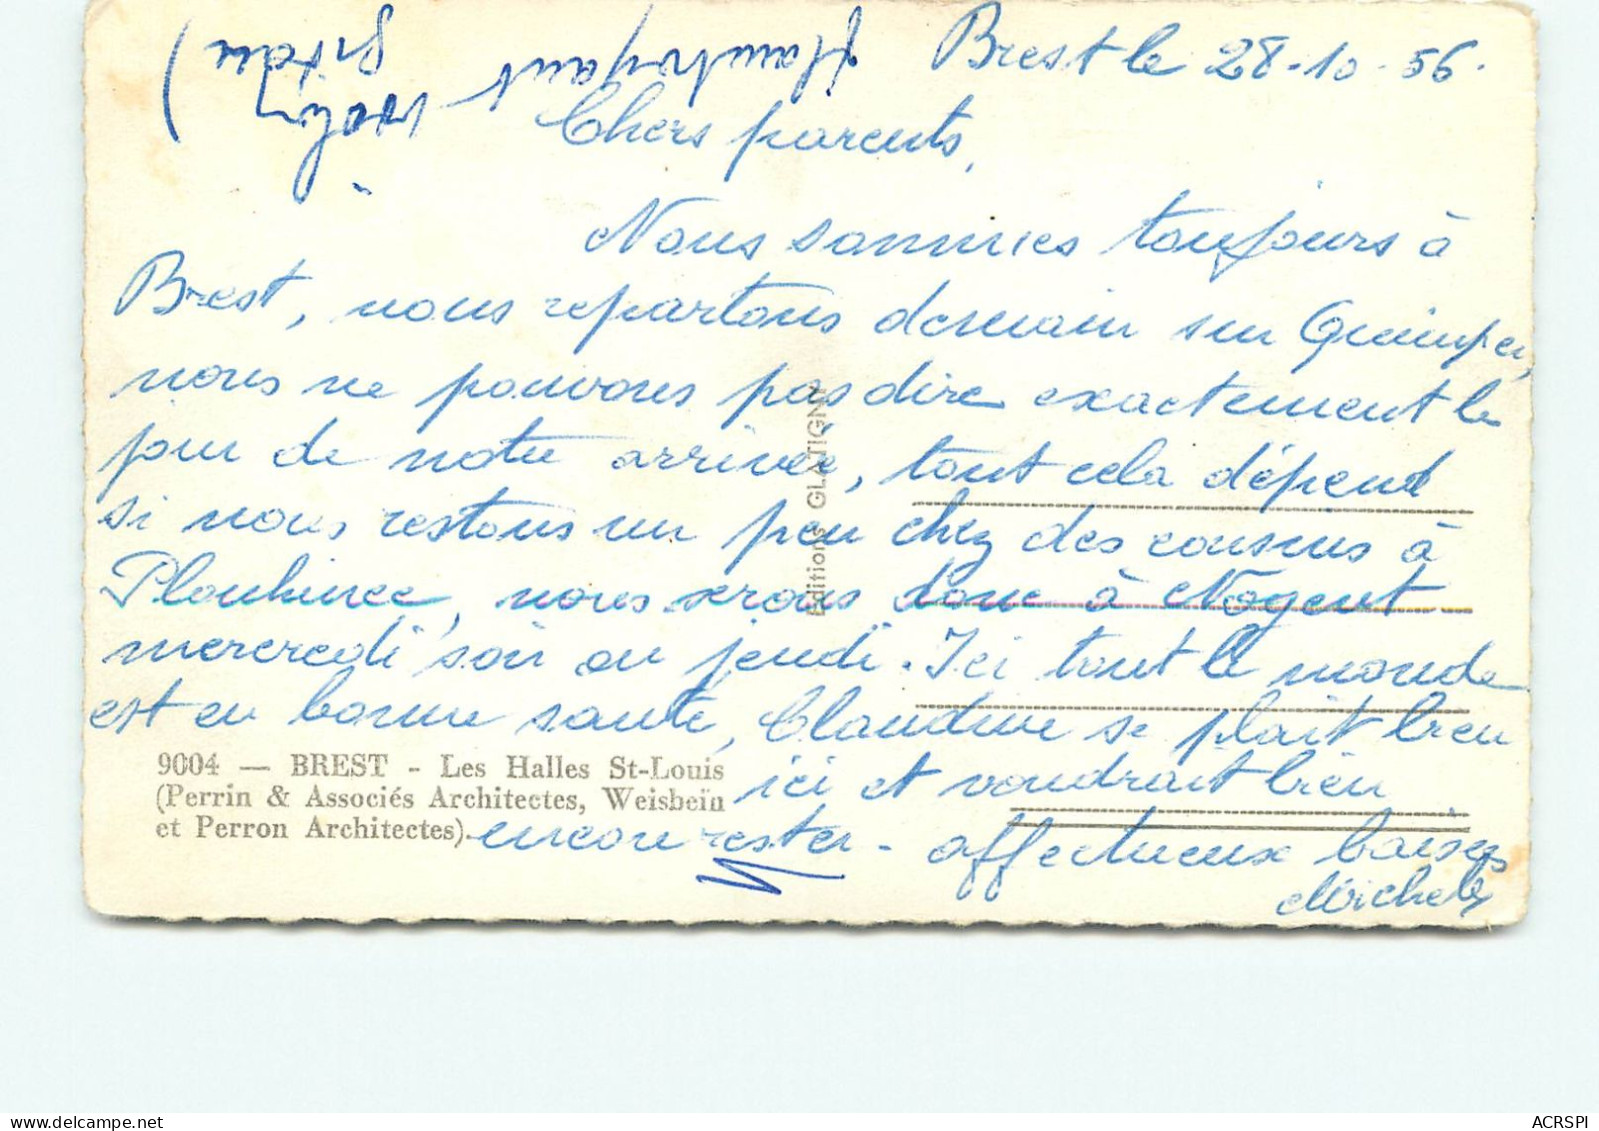 Brest le 28-10-56.
Chers parents,
Nous sommes toujours à
Brest, nous repartons demain sur Quimper,
nous ne pouvons pas dire exactement le
jour de notre arrivée, tout cela dépend
si nous restons un peu chez des cousins à
Plouhinec, nous serons donc à Nogent
mercredi soir ou jeudi. Ici tout le monde
est en bonne santé, Claudine se plaît bien
ici et voudrait bien
encore rester - affectueux baisers
Michel
9004 — BREST - Les Halles St-Louis
(Perrin & Associés Architectes, Weisbeïn
et Perron Architectes).
Editions GLATIGNY
ACRSPI